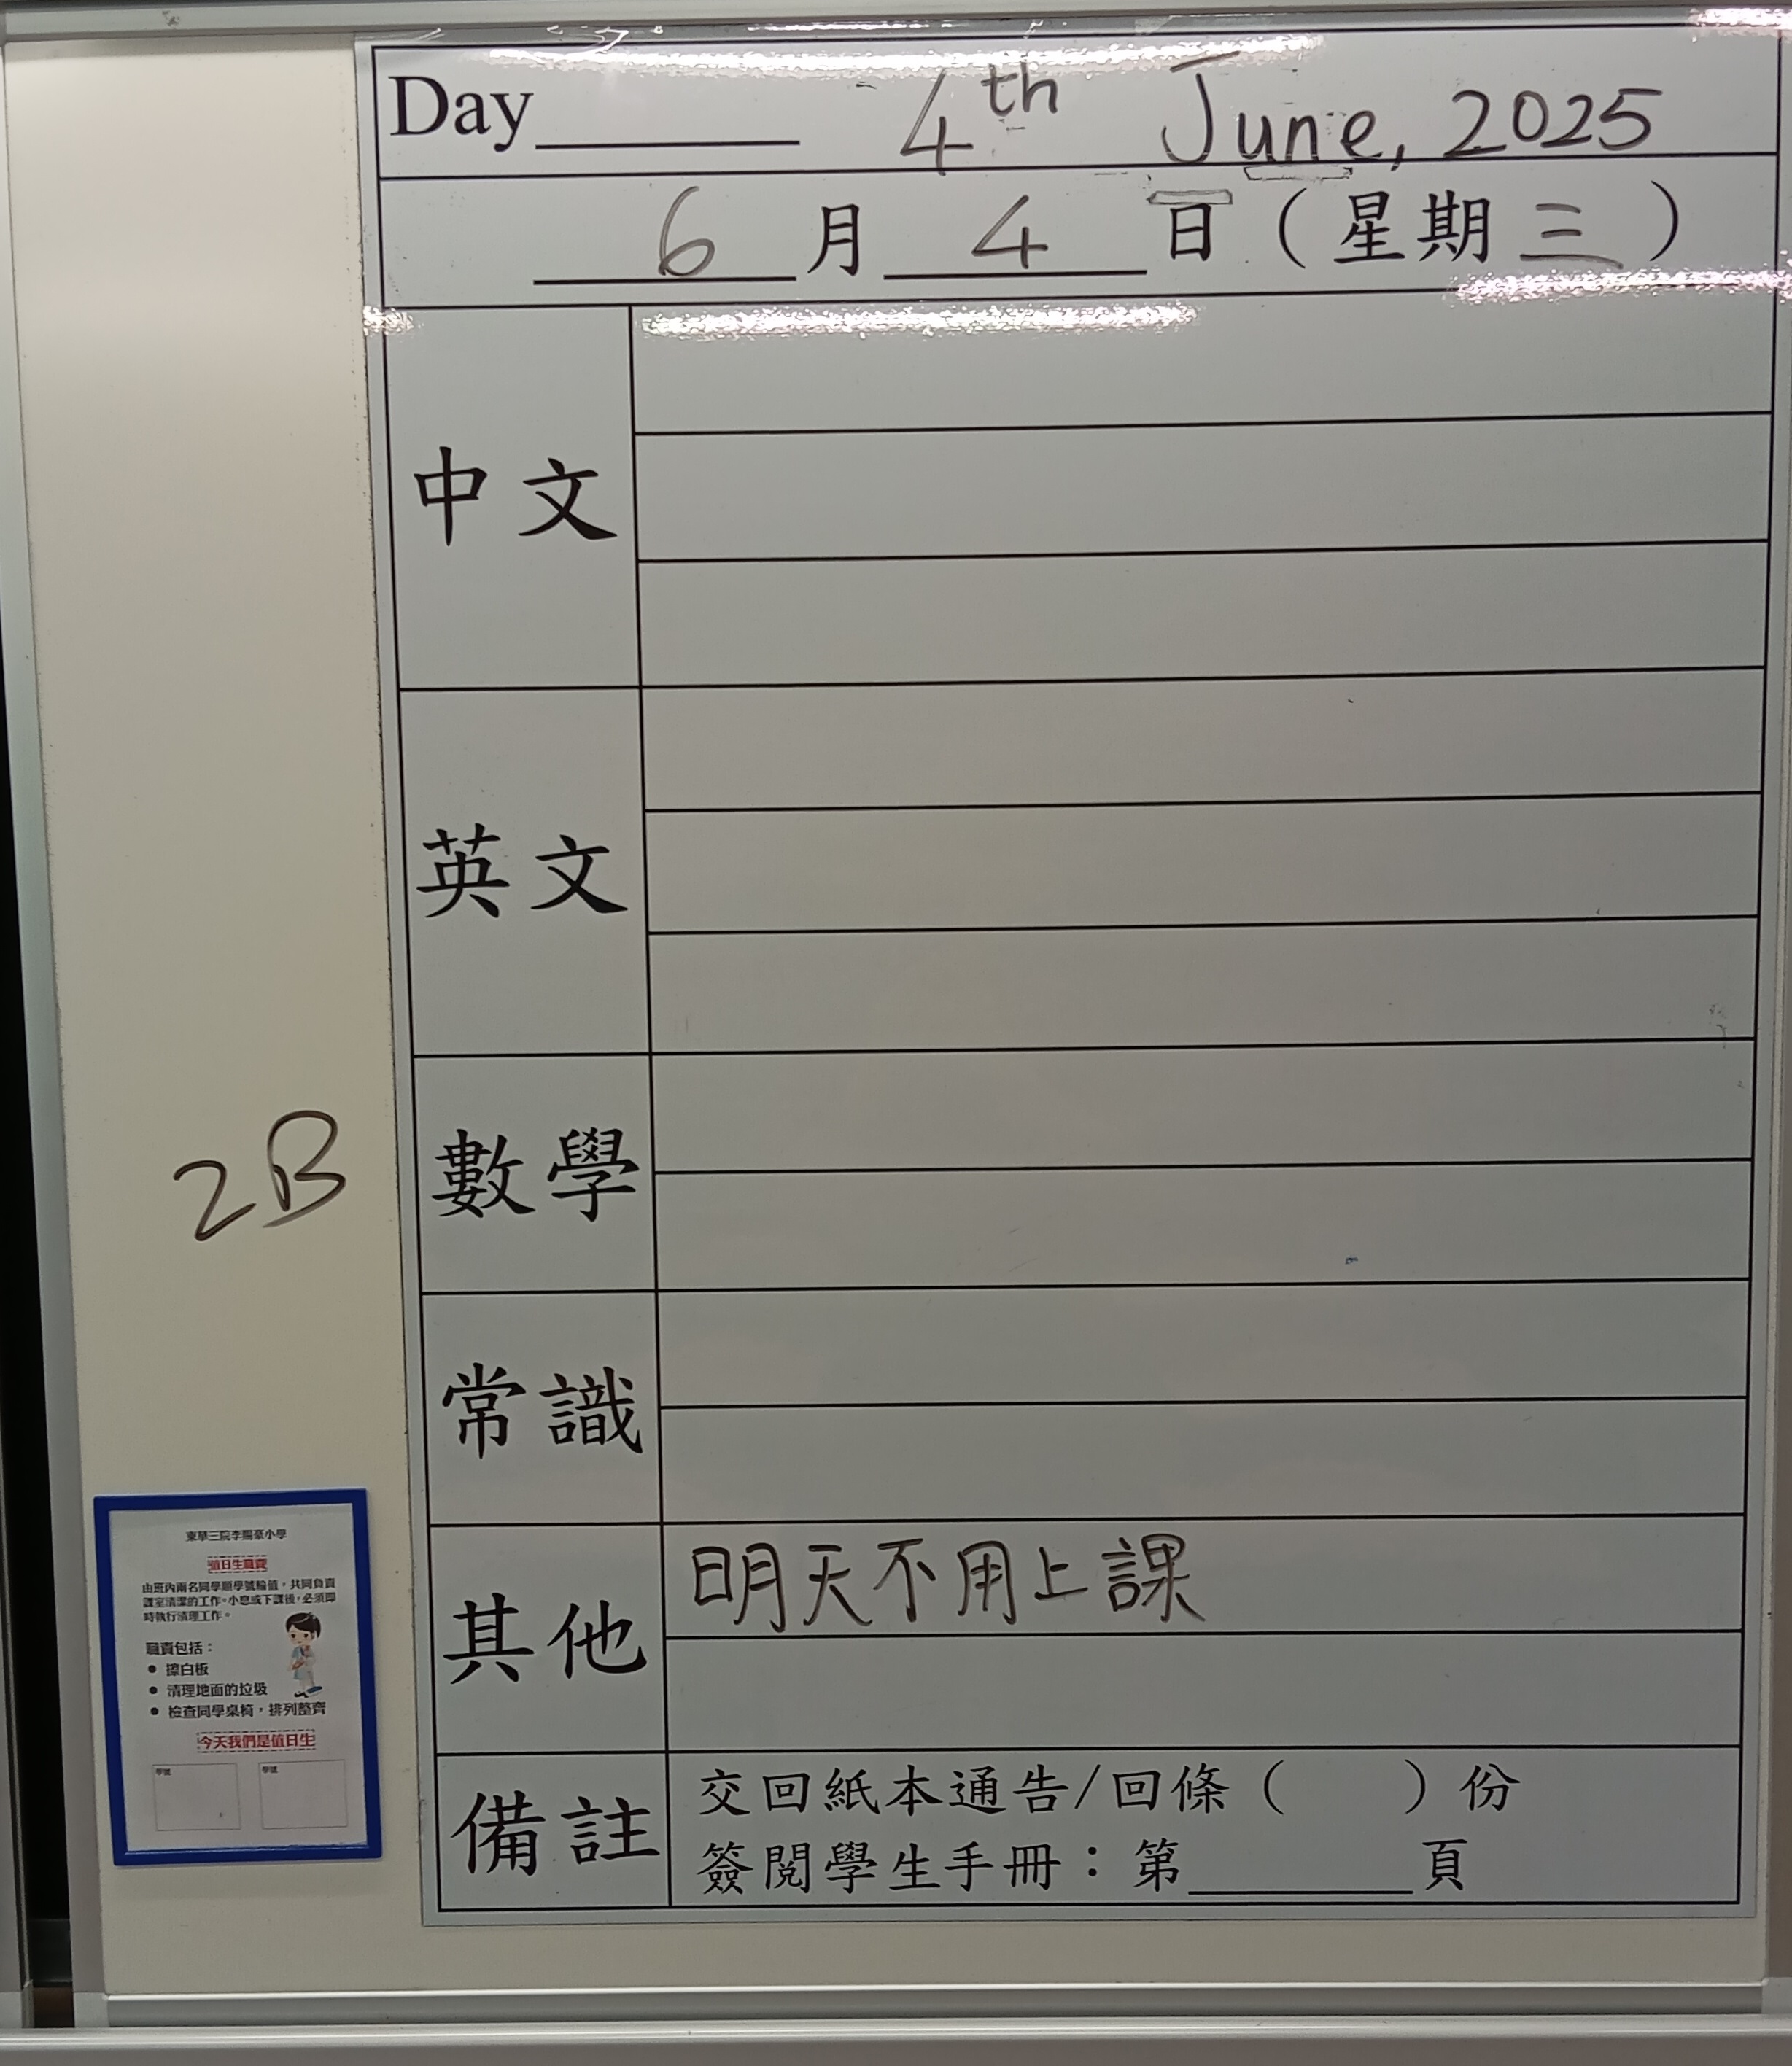 Day______ 4th June, 2025
6月4日（星期三）
中文
英文
數學
常識
其他
明天不用上課
備註
交回紙本通告/回條（　　）份
簽閱學生手冊：第______頁
2B
東華三院李賜豪小學
值日生職責
由班內兩名同學順學號輪值，共同負責
課室清潔的工作。小息或下課後，必須即
時執行清理工作。
職責包括：
● 擦白板
● 清理地面的垃圾
● 檢查同學桌椅，排列整齊
今天我們是值日生
學號
學號